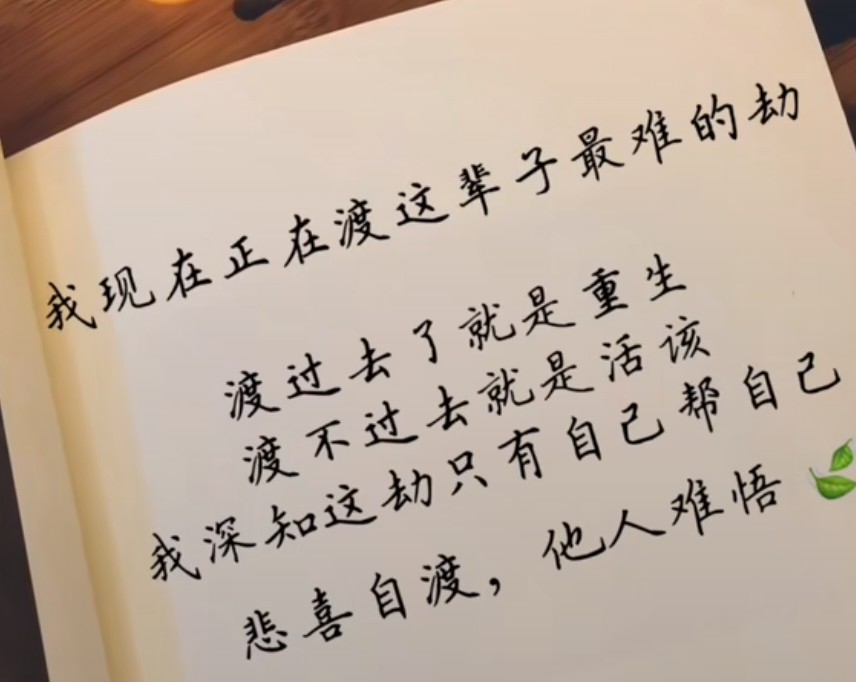 我现在正在渡这辈子最难的劫
渡过去了就是重生
渡不过去就是活该
我深知这劫只有自己帮自己
悲喜自渡，他人难悟